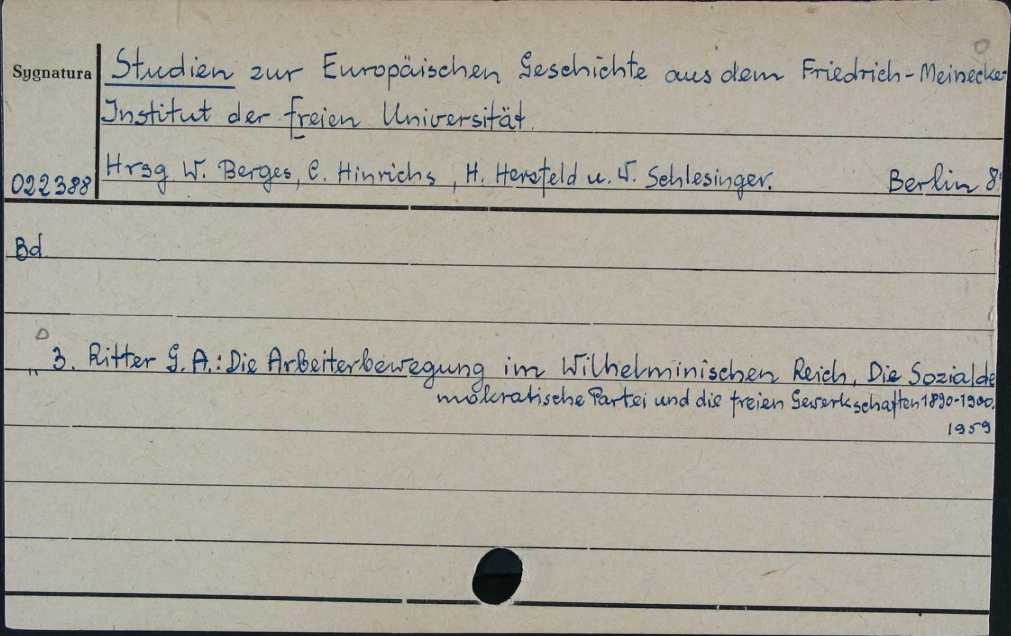 Sygnatura
Studien zur Europäischen Geschichte aus dem Friedrich-Meinecke
Institut der freien Universität.
022388
Hrsg W. Berges, C. Hinrichs, H. Herzfeld u. W. Schlesinger. Berlin 8°
Bd
„ 3. Ritter G. A.: Die Arbeiterbewegung im Wilhelminischen Reich, Die Sozialde
mokratische Partei und die freien Gewerkschaften 1890-1900.
1959